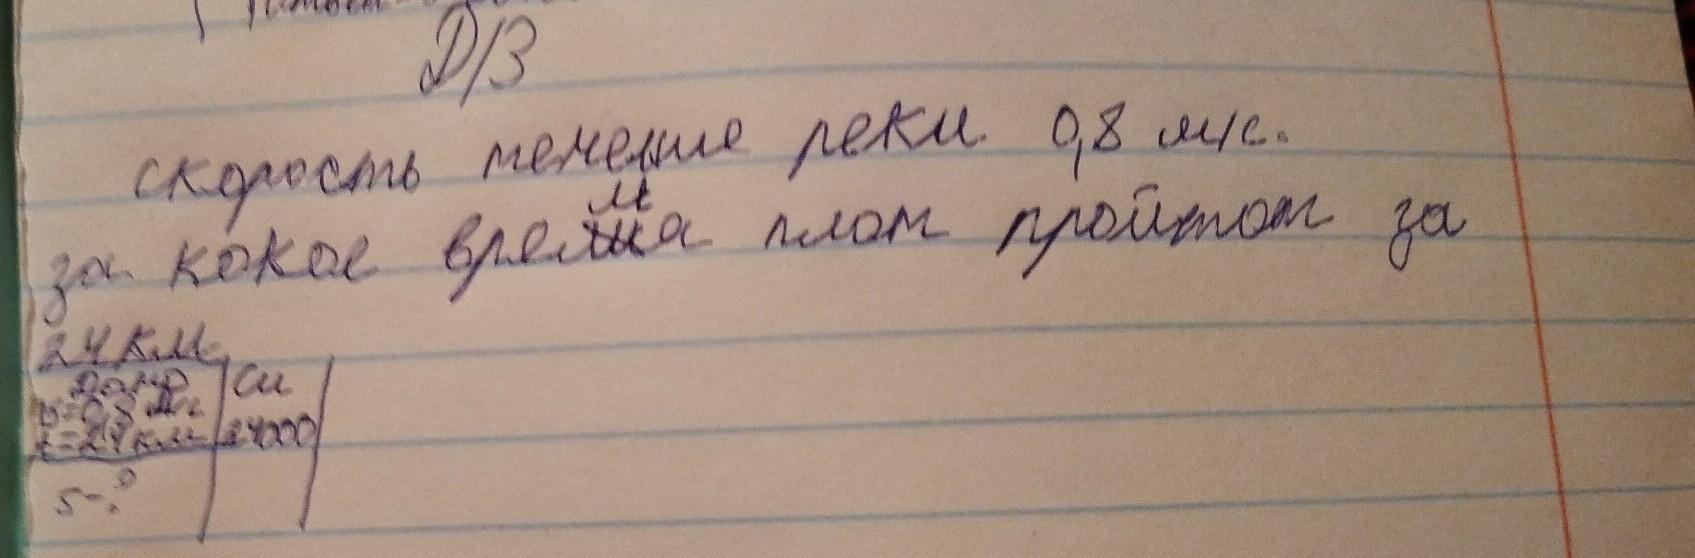 Д/З
скорость течение реки 0,8 м/с.
за какое время плот пройтот за
24 км
Дано
СИ
υ=0,8 м/с
t=24 км
24000
S-?